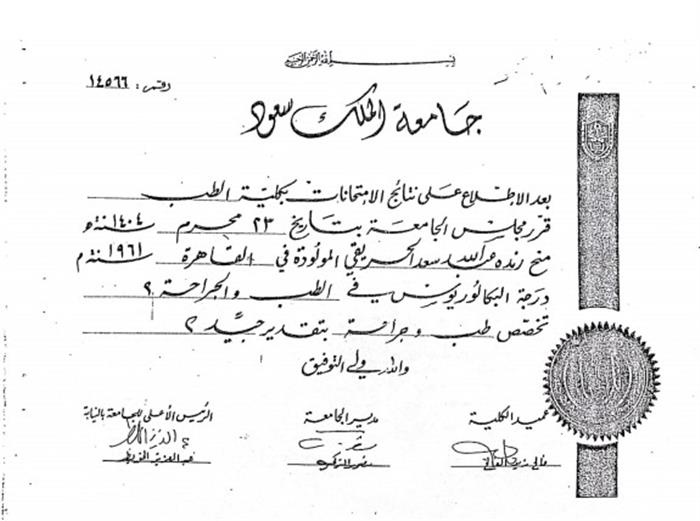 بسم الله الرحمن الرحيم
رقم: ١٤٥٦٦
جامعة الملك سعود
بعد الاطلاع على نتائج الامتحانات بكلية الطب
قرر مجلس الجامعة بتاريخ ٢٣ محرم سنة ١٤٠٤ هـ
منح رنده عبدالله سعد الحريقي المولودة في القاهرة سنة ١٩٦١ م
درجة البكالوريوس في الطب والجراحة
تخصص طب وجراحة بتقدير جيد
والله ولي التوفيق
عميد الكلية
مدير الجامعة
الرئيس الأعلى للجامعة بالنيابة
منصور التركي
عبدالعزيز الخويطر